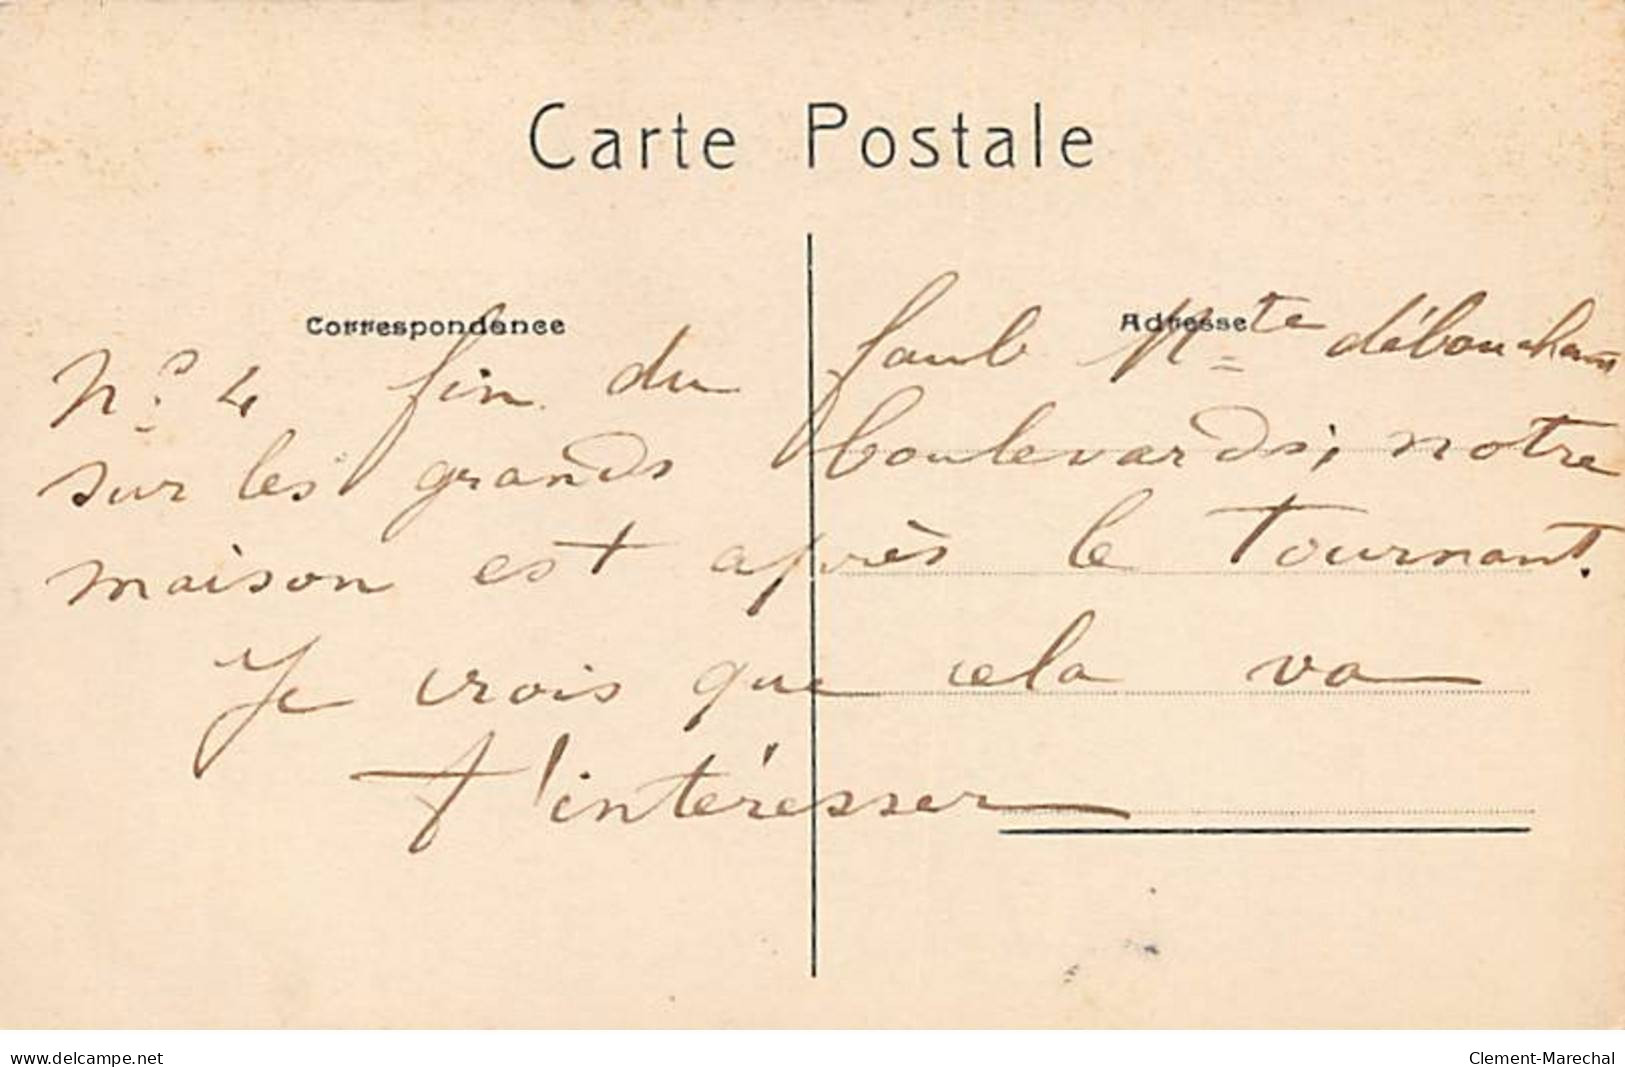 Carte Postale
Correspondance
Adresse
No. 4 fin du faub débouchant
sur les grands boulevards; notre
maison est après le tournant.
Je crois que cela va
t'intéresser
www.delcampe.net
Clement-Marechal